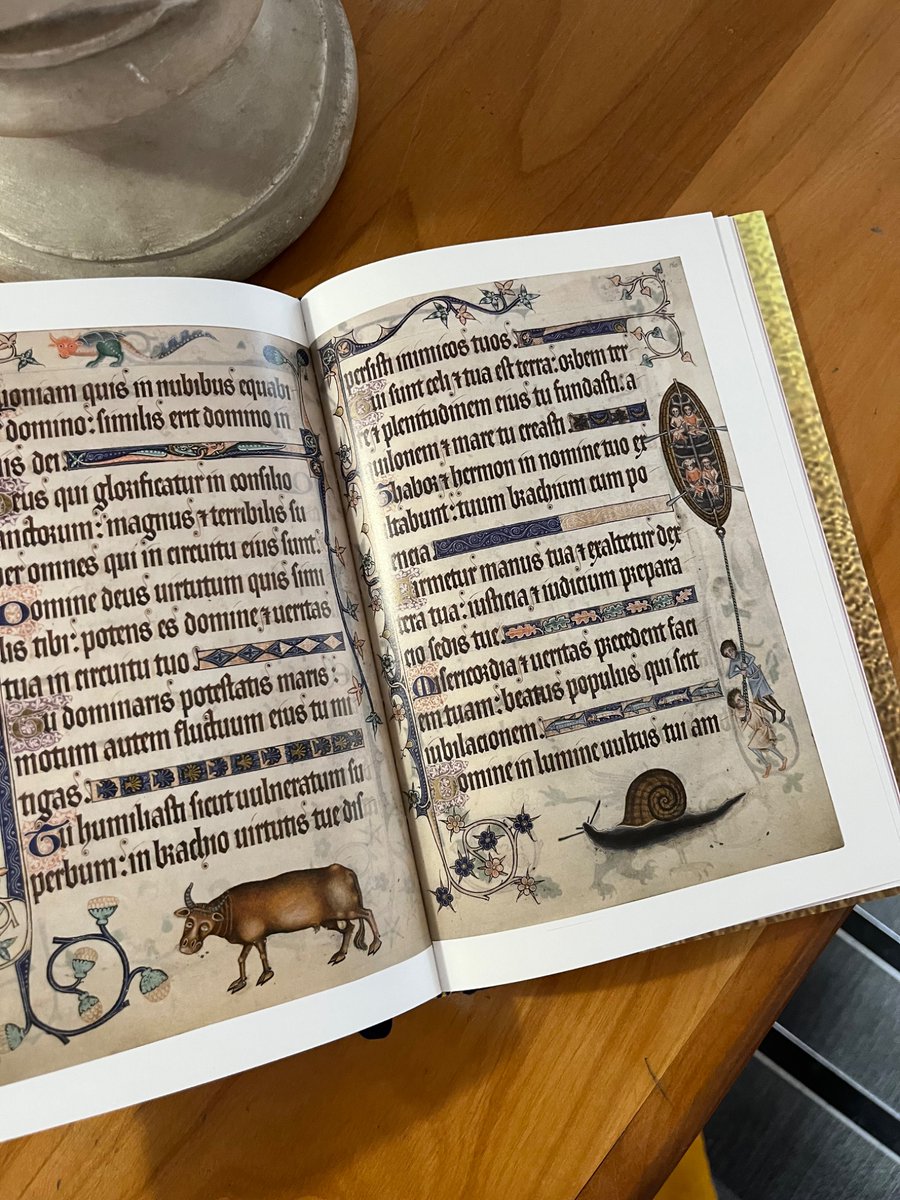 uoniam quis in nubibus equabi
r domino: similis erit domino in
iis dei.
Deus qui glorificatur in consilio
anctorum: magnus ⁊ terribilis su
per omnes qui in circuitu eius sunt.
Domine deus uirtutum quis simi
lis tibi: potens es domine ⁊ ueritas
tua in circuitu tuo.
Tu dominaris potestatis maris:
motum autem fluctuum eius tu mi
tigas.
Tu humiliasti sicut uulneratum su
perbum: in brachio uirtutis tue dis
persisti inimicos tuos.
Tui sunt celi ⁊ tua est terra. orbem ter
re ⁊ plenitudinem eius tu fundasti: a
quilonem ⁊ mare tu creasti
Thabor ⁊ hermon in nomine tuo ex
ltabunt: tuum brachium cum po
encia.
Firmetur manus tua ⁊ exaltetur dex
tera tua: iusticia ⁊ iudicium prepara
cio sedis tue.
Misericordia ⁊ ueritas precedent faci
em tuam: beatus populus qui scit
iubilacionem.
Domine in lumine uultus tui am